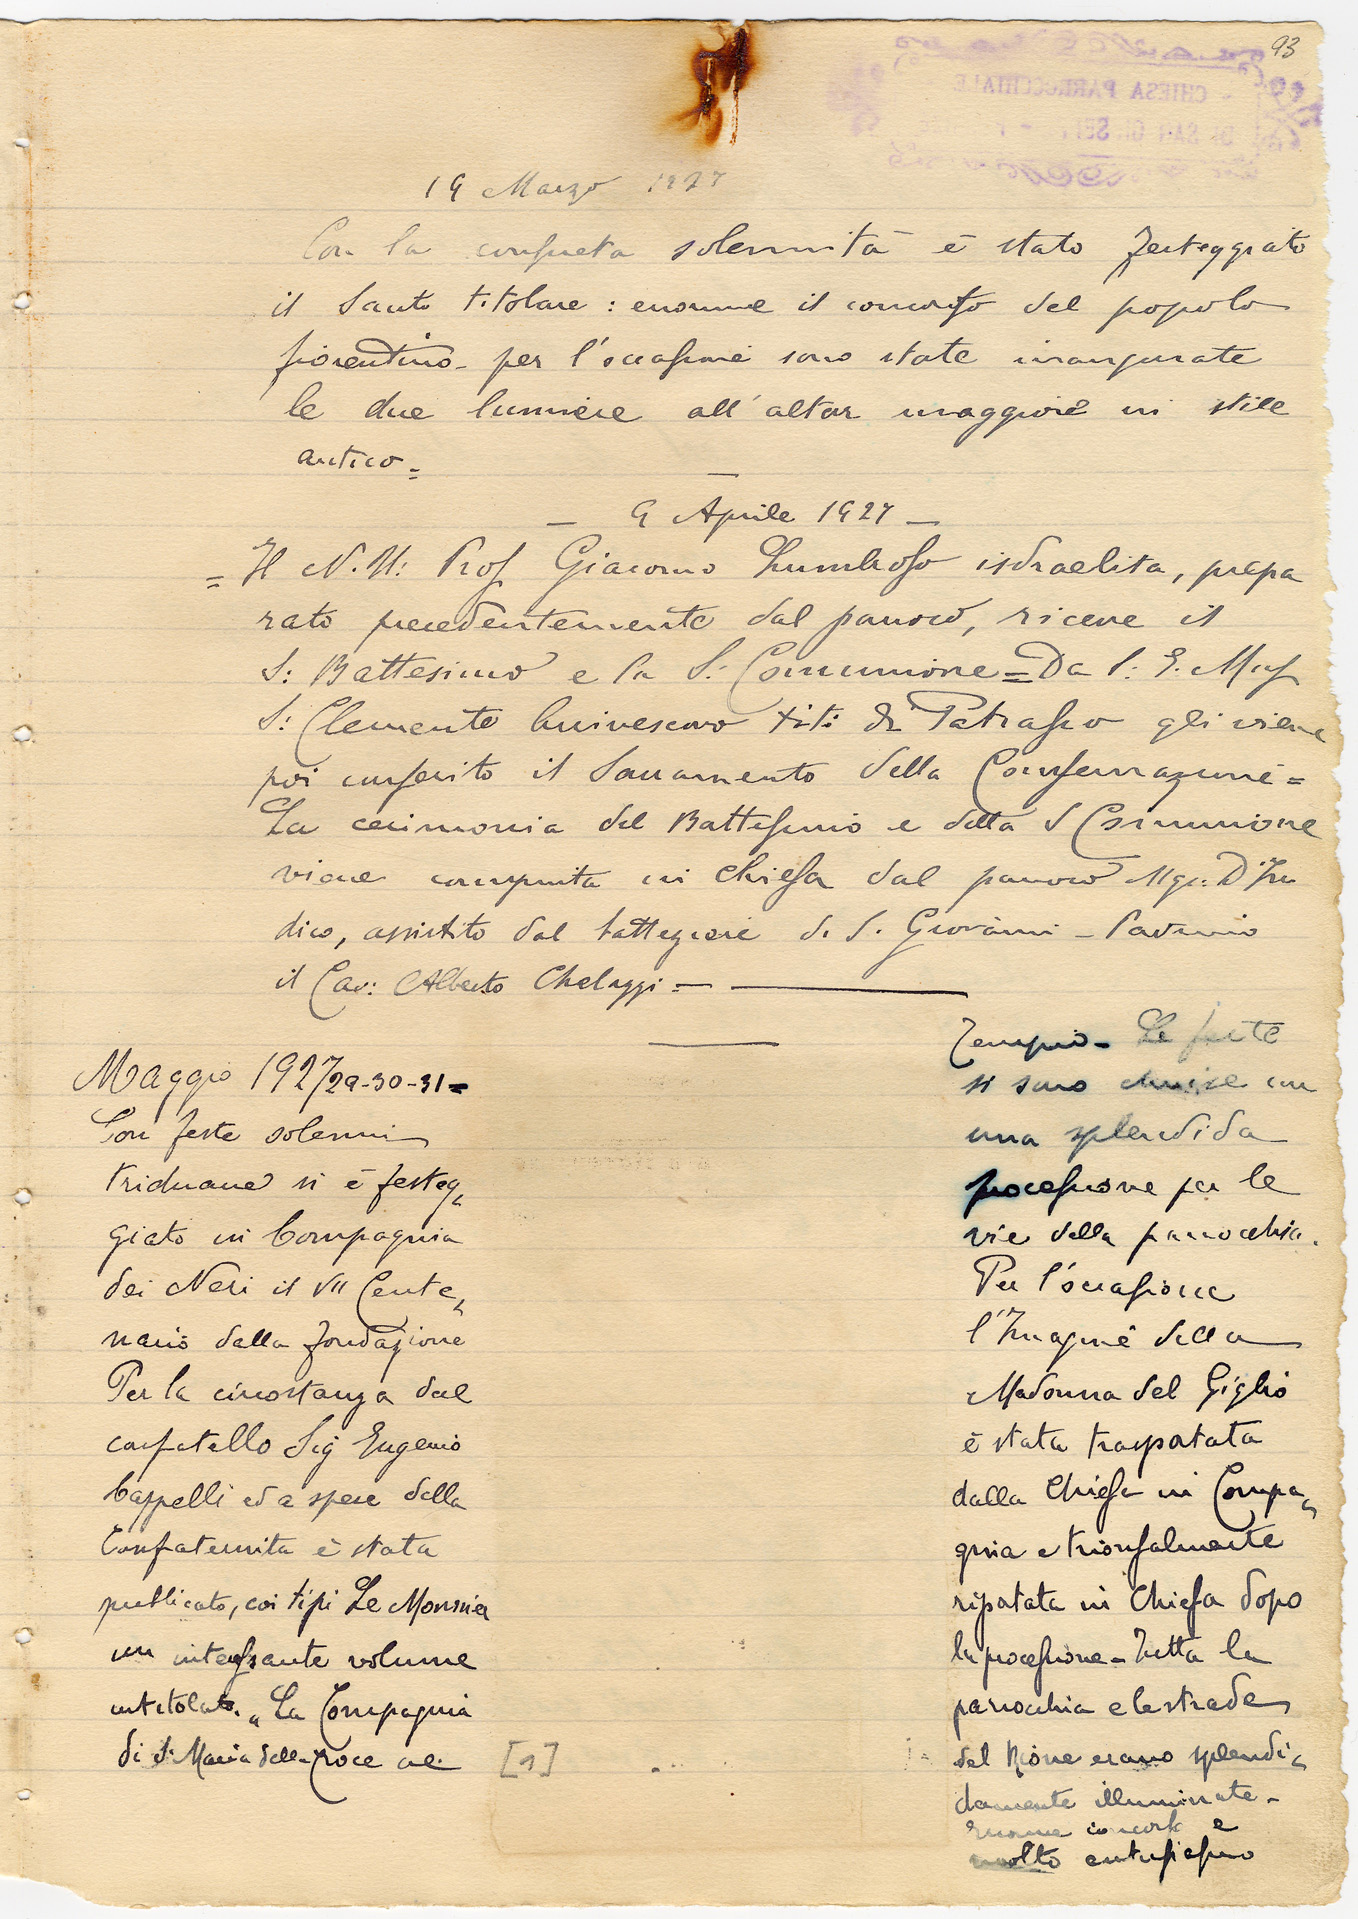 93
19 Marzo 1927
Con la consueta solennità è stato festeggiato
il Santo titolare: enorme il concorso del popolo
fiorentino - per l'occasione sono state inaugurate
le due lumiere all'altar maggiore in stile
antico =
— 9 Aprile 1927 —
= Il N. H: Prof Giacomo Lumbroso isdraelita, prepa
rato precedentemente dal parroco, riceve il
S: Battesimo e la S: Comunione = Da S: E. Mns
S: Clemente Arcivescovo tit: di Patrasso gli viene
poi conferito il Sacramento della Confermazione =
La cerimonia del Battesimo e della S Comunione
viene compiuta in chiesa dal parroco Mgr: D'In
dico, assistito dal battezziere di S. Giovanni - Padrino
il Cav: Alberto Chelazzi =
Maggio 1927 29-30-31 =
Con feste solenni
triduane si è festeg„
giato in Compagnia
dei Neri il VII Cente„
nario della fondazione
Per la circostanza dal
confratello Sig Eugenio
Cappelli ed a spese della
Confraternita è stata
publicato, coi tipi Le Monnier
un interessante volume
intitolato. „ La Compagnia
di S: Maria della Croce al
[1]
Tempio - Le feste
si sono chiuse con
una splendida
processione per le
vie della parrocchia.
Per l'occasione
l'Imagine della
Madonna del Giglio
è stata trasportata
dalla Chiesa in Compa„
gnia e trionfalmente
riportata in Chiesa dopo
la processione - Tutta la
parrocchia e le strade
del Rione erano splendi„
damente illuminate -
Enorme concorso e
molto entusiasmo
- CHIESA PARROCCHIALE -
DI SAN GIUSEPPE